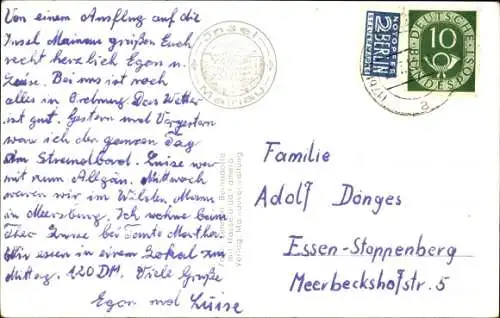 Von einem Ausflug auf die
Insel Mainau grüßen Euch
recht herzlich Egon u.
Luise. Bei uns ist noch
alles in Ordnung. Das Wetter
ist gut. Gestern und Vorgestern
war ich den ganzen Tag
Am Strandbad. Luise war
mit zum Allgäu. Mittwoch
waren wir im Wilden Mann
in Meersburg. Ich wohne beim
Theo Luise bei Tante Martha.
Wir essen in einem Lokal zu
Mittag. 1,20 DM. Viele Grüße
Egon und Luise
Insel
Mainau
NOTOPFER
2 BERLIN
STEUERMARKE
DEUTSCHE
BUNDESPOST
10
a
Familie
Adolf Dönges
Essen-Stoppenberg
Meerbeckshofstr. 5